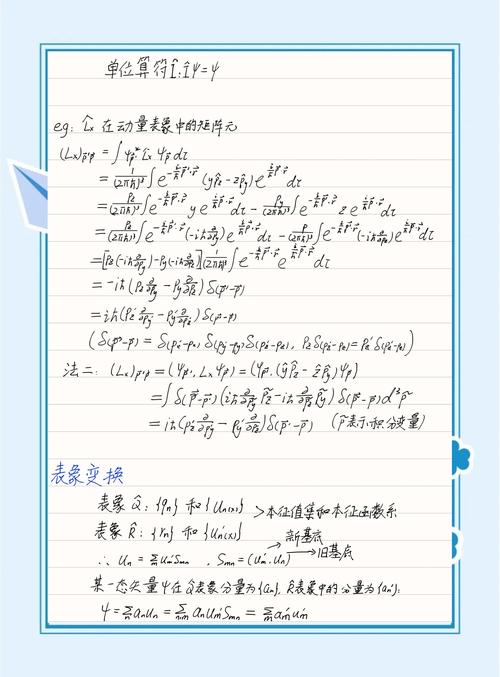 单位算符Î: Îψ=ψ
eg: L̂x 在动量表象中的矩阵元
(Lx)p⃗'p⃗ = ∫ψp⃗'* L̂x ψp⃗ dτ
= 1/(2πħ)³ ∫e^(-i/ħ p⃗'·r⃗) (yp̂z - zp̂y) e^(i/ħ p⃗·r⃗) dτ
= pz/(2πħ)³ ∫e^(-i/ħ p⃗'·r⃗) y e^(i/ħ p⃗·r⃗) dτ - py/(2πħ)³ ∫e^(-i/ħ p⃗'·r⃗) z e^(i/ħ p⃗·r⃗) dτ
= pz/(2πħ)³ ∫e^(-i/ħ p⃗'·r⃗) (-iħ ∂/∂py) e^(i/ħ p⃗·r⃗) dτ - py/(2πħ)³ ∫e^(-i/ħ p⃗'·r⃗) (-iħ ∂/∂pz) e^(i/ħ p⃗·r⃗) dτ
= [pz(-iħ ∂/∂py) - py(-iħ ∂/∂pz)] 1/(2πħ)³ ∫e^(-i/ħ p⃗'·r⃗) e^(i/ħ p⃗·r⃗) dτ
= -iħ (pz ∂/∂py - py ∂/∂pz) δ(p⃗'-p⃗)
= iħ (pz' ∂/∂py' - py' ∂/∂pz') δ(p⃗'-p⃗)
(δ(p⃗'-p⃗) = δ(px'-px) δ(py'-py) δ(pz'-pz), pzδ(pz'-pz) = pz'δ(pz'-pz))
法二: (Lx)p⃗'p⃗ = (ψp⃗', Lxψp⃗) = (ψp⃗', (ŷp̂z - ẑp̂y)ψp⃗)
= ∫δ(p̃-p⃗') (iħ ∂/∂p̃y p̃z - iħ ∂/∂p̃z p̃y) δ(p̃-p⃗) d³p̃
= iħ (pz' ∂/∂py' - py' ∂/∂pz') δ(p⃗'-p⃗) (p̃表示积分变量)
表象变换
表象Q̂: {qn} 和 {un(x)} >本征值集和本征函数系
表象R̂: {rn} 和 {un'(x)}
新基底
∴ un = Σm um'Smn , Smn = (um', un) → 旧基底
某一态矢量ψ在Q表象分量为{an}, R表象中的分量为{an'}:
ψ = Σn anun = Σnm anum'Smn = Σm am'um'